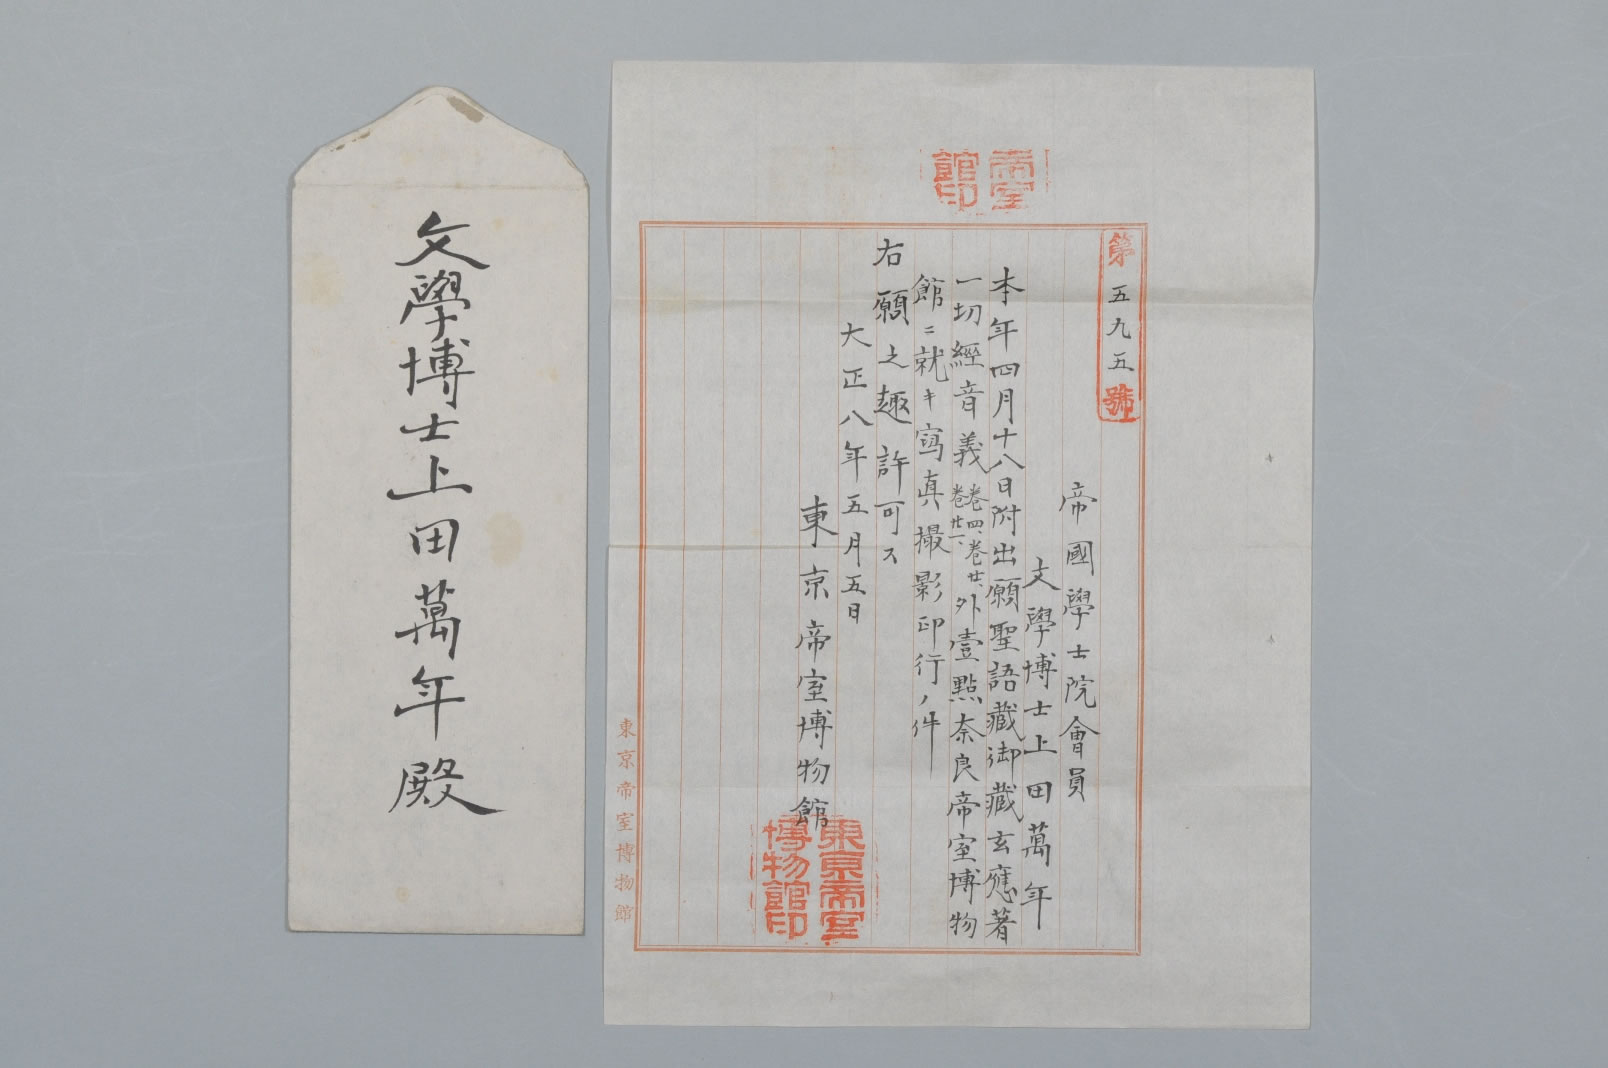 文學博士上田萬年殿
帝室
館印
第五九五號
帝國學士院會員
文學博士上田萬年
本年四月十八日附出願聖語藏御藏玄應著
一切經音義卷四、卷廿、卷廿一、外壹點奈良帝室博物
館ニ就キ寫真撮影印行ノ件
右願之趣許可ス
大正八年五月五日
東京帝室博物館
東京帝室
博物館印
東京帝室博物館